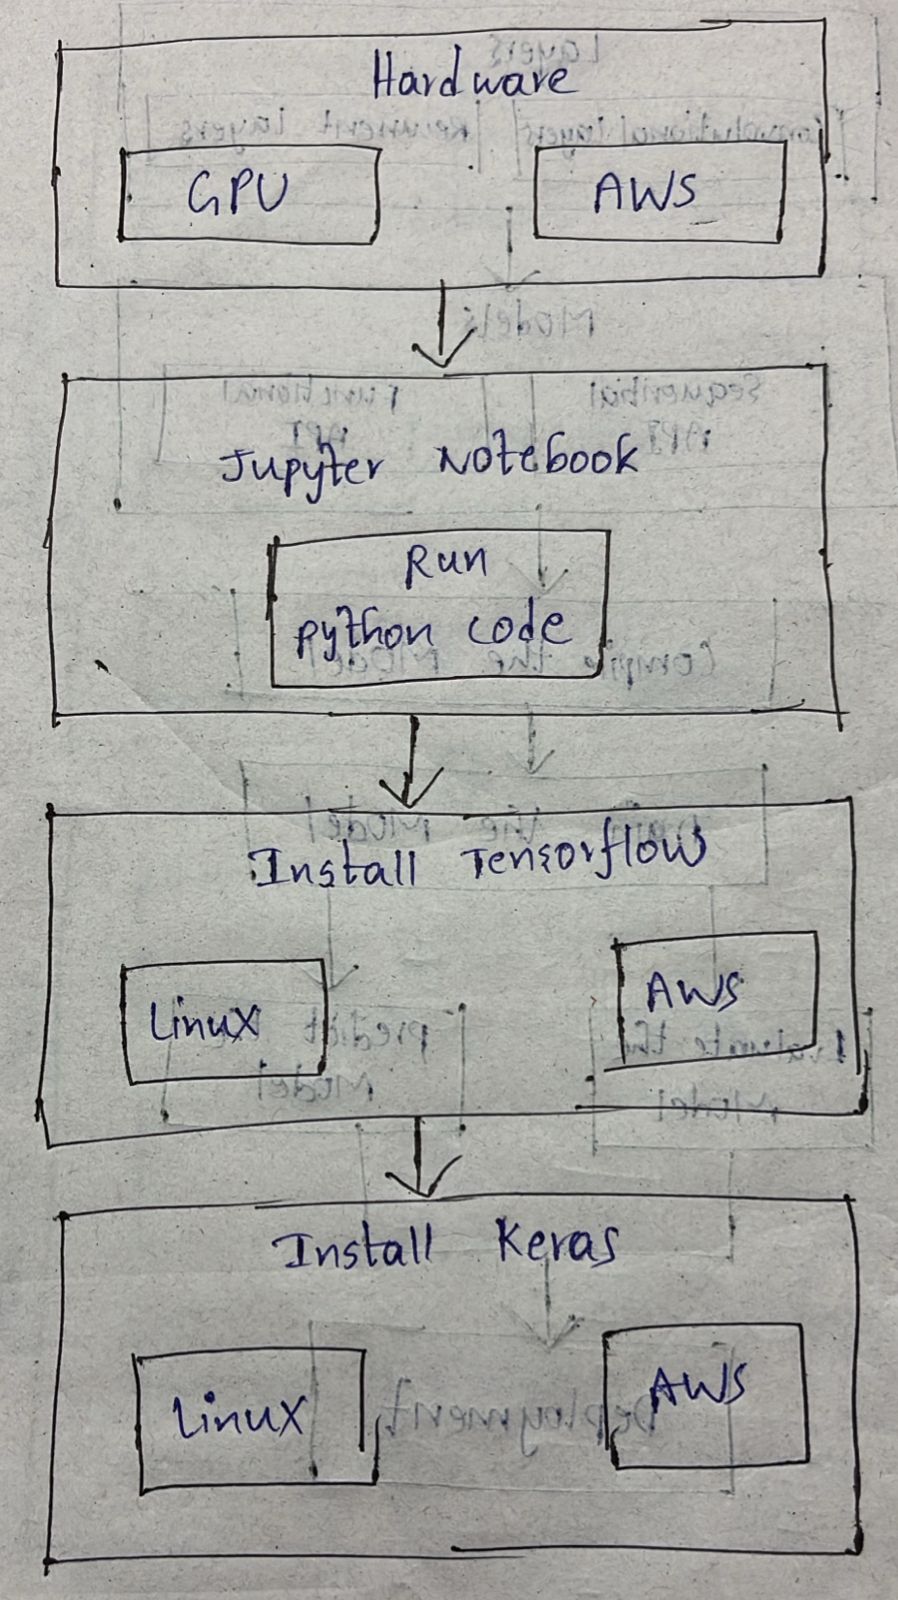 Hardware
GPU
AWS
Jupyter Notebook
Run
python code
Install Tensorflow
Linux
AWS
Install Keras
Linux
AWS